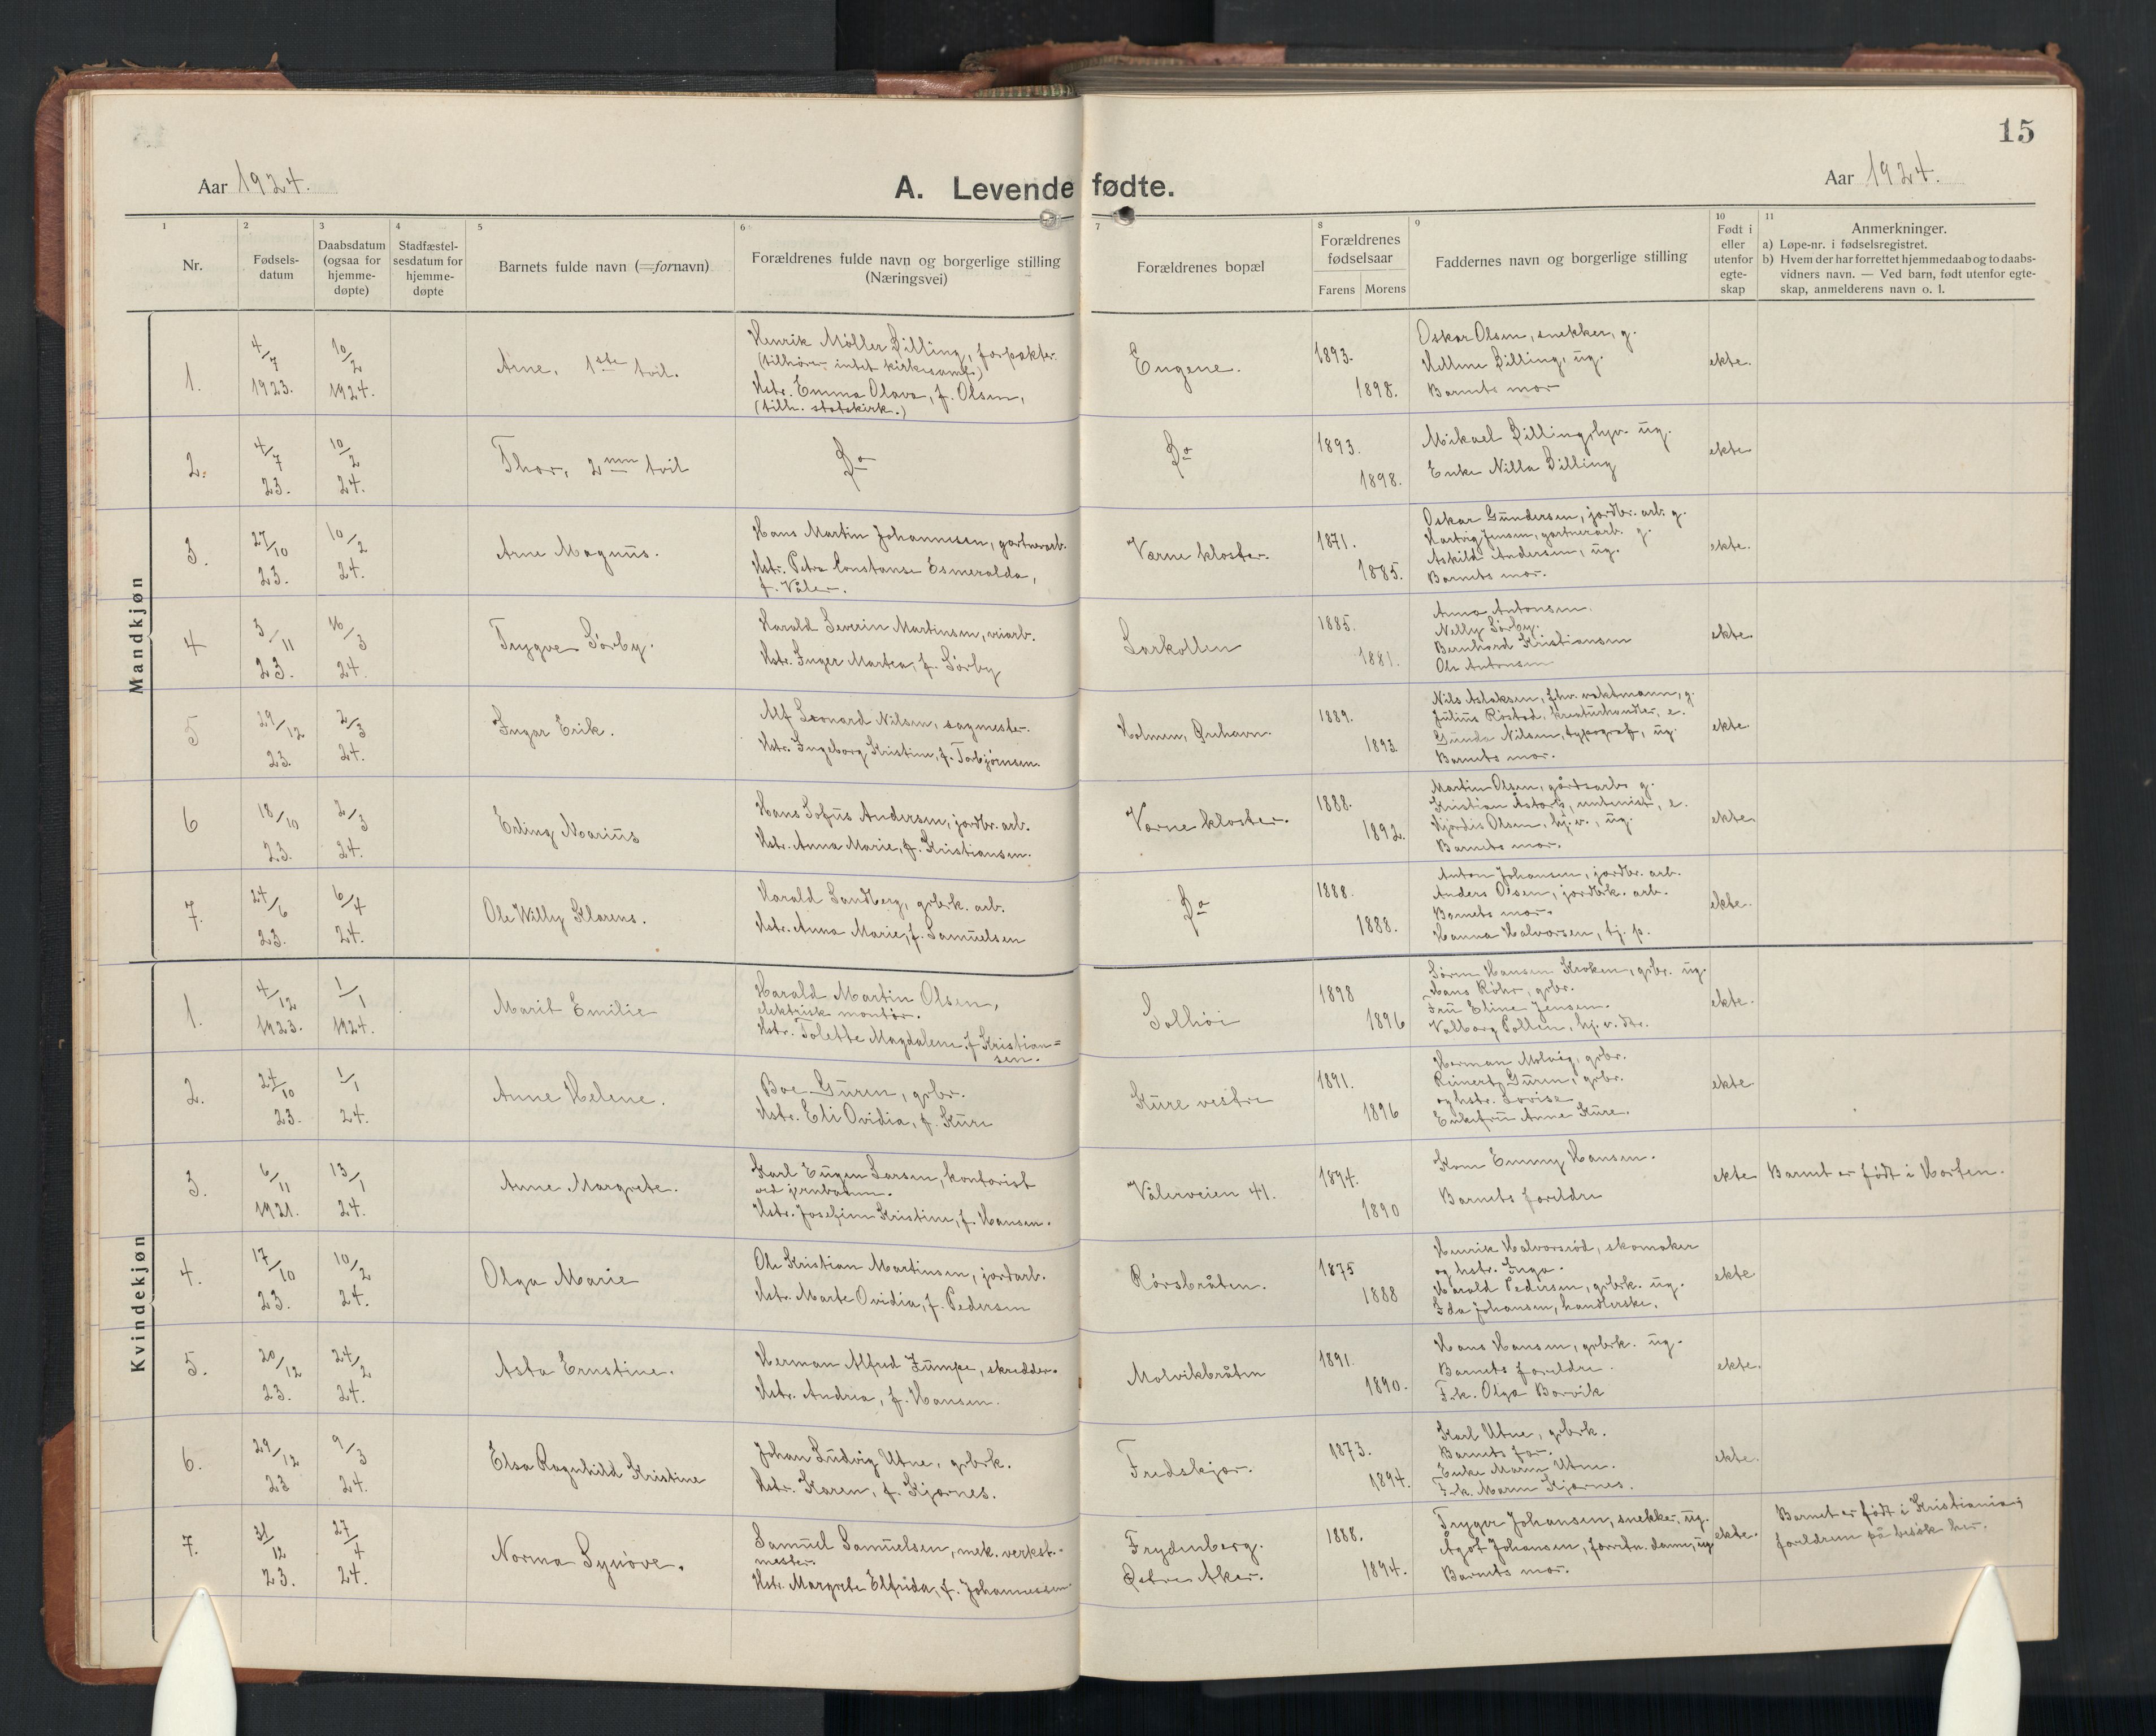 15
Aar 1924.
A. Levende fødte.
Aar 1924.
1
2
3
4
5
6
7
8
9
10
11
Nr.
Fødsels-
datum
Daabsdatum
(ogsaa for
hjemme-
døpte)
Stadfæstel-
sesdatum for
hjemme-
døpte
Barnets fulde navn (=fornavn)
Forældrenes fulde navn og borgerlige stilling
(Næringsvei)
Forældrenes bopæl
Forældrenes
fødselsaar
Farens
Morens
Faddernes navn og borgerlige stilling
Født i
eller
utenfor
egte-
skap
Anmerkninger.
a) Løpe-nr. i fødselsregistret.
b) Hvem der har forrettet hjemmedaab og to daabs-
vidners navn. — Ved barn, født utenfor egte-
skap, anmelderens navn o. l.
Mandkjøn
1.
4/7
1923.
10/2
1924.
Arne, 1ste tvil.
Henrik Møller Dilling, forpakter.
(tilhører intet kirkesamf.)
Hstr. Emma Olava, f. Olsen,
(tilh. statskirk.)
Eugene.
1893.
1898.
Oskar Olsen, snekker, g.
Helene Dilling, ug.
Barnets mor
ekte.
2.
4/7
23.
10/2
24.
Thor, 2nen tvil
Do
Do
1893.
1898.
Mikael Dilling, ug.
Enke Nilla Dilling
ekte
3.
27/10
23.
10/2
24.
Arne Magnus.
Hans Martin Johannesen, gartnerarb.
Hstr. Petra Constanse Esmeralda,
f. Våler.
Værne kloster.
1871.
1885.
Oskar Gundersen, jordbr. arb. g.
Hartvig Jensen, gartnerarb. g.
Askild Andersen, ug.
Barnets mor.
ekte.
4
3/11
23.
16/3
24.
Trygve Sørby.
Harald Severin Martinsen, veiarb.
Hstr. Inger Martea, f. Sørby
Larkollen
1885.
1881.
Anna Antonsen.
Nelly Sørby.
Bernhard Kristiansen
Ole Antonsen
ekte
5
29/12
23.
2/3
24.
Ingar Erik.
Alf Leonard Nilsen, sagmester.
Hstr. Ingeborg Kristine, f. Torbjørnsen.
Holmen, Ørehavn.
1889.
1893.
Nils Aslaksen, fhv. vaktmann, g.
Julius Rørstad, kreaturhandler, e.
Gunda Nilsen, typograf, ug.
Barnets mor.
ekte
6
18/10
23.
2/3
24.
Erling Marius
Hans Sofus Andersen, jordbr. arb.
Hstr. Anna Marie, f. Kristiansen.
Værne kloster.
1888.
1892.
Martin Olsen, gårdsarb. g.
Kristian e.
Hjørdis Olsen, hj. v., ug.
Barnets mor.
ekte
7.
24/6
23.
6/4
24.
Ole Willy Klarens.
Harald Sandberg, grbrk. arb.
Hstr. Anna Marie, f. Samuelsen
Do
1888.
1888.
Anton Johansen, jordbr. arb.
Anders Olsen, jordbrk. arb.
Barnets mor.
Hanna Halvorsen, tj. p.
ekte.
Kvindekjøn
1.
4/12
1923.
1/1
1924.
Marit Emilie
Harald Martin Olsen,
elektrisk montør.
Hstr. Tolette Magdalene, f. Kristian=
sen.
Solhøi
1898
1896
Søren Hansen Kroken, grbr. ug.
Hans Røhr, grbr.
Fru Eline Jensen.
Valborg Pollen, hj. v. dtr.
ekte.
2.
24/10
23.
1/1
24.
Anne Helene.
Boe Guren, grbr.
Hstr. Eli Ovidia, f. Kure
Kure vestre
1891.
1896
Herman Molvig, grbr.
Reinert Guren, grbr.
og hstr. Lovise
Enkefru Anne Kure.
ekte
3.
6/11
1921.
13/1
24.
Anne Margrete.
Karl Eugen Larsen, kontorist
ved jernbanen.
Hstr. Josefine Kristine, f. Hansen.
Vålerveien 41.
1894.
1890
Kone Emmy Hansen.
Barnets foreldre
ekte
Barnet er født i Horten.
4.
17/10
23.
10/2
24.
Olga Marie
Ole Kristian Martinsen, jordarb.
Hstr. Marte Ovidia, f. Pedersen
Rørsbråten.
1875
1888
Henrik Halvorsrød, skomaker
og hstr. Inga.
Harald Pedersen, grbrk. ug.
Ida Johansen, handlerske.
ekte
5.
20/12
23.
24/2
24.
Asta Ernstine.
Herman Alfred Zumpe, skredder.
Hstr. Andrea, f. Hansen.
Molvikbråten
1891.
1890.
Hans Hansen, grbrk. ug.
Barnets foreldre.
Frk. Olga Borvik
ekte.
6.
29/12
23
9/3
24.
Elsa Ragnhild Kristine
Johan Ludvig Utne, grbrk.
Hstr. Karen, f. Kjærnes.
Fredskjær.
1873.
1894.
Karl Utne, grbrk.
Barnets far.
Enke Maren Utne.
Frk. Maren Kjærnes.
ekte.
7.
31/12
23.
27/4
24.
Norma Synøve.
Samuel Samuelsen, mek. verkst.-
mester.
Hstr. Margrete Elfrida, f. Johannessen
Frydenberg.
Østre Aker.
1888.
1894.
Trygve Johansen, snekker, ug.
Ågot Johansen, forretn. dame, ug
Barnets mor.
ekte.
Barnet er født i Kristiania;
foreldrene på besøk her.